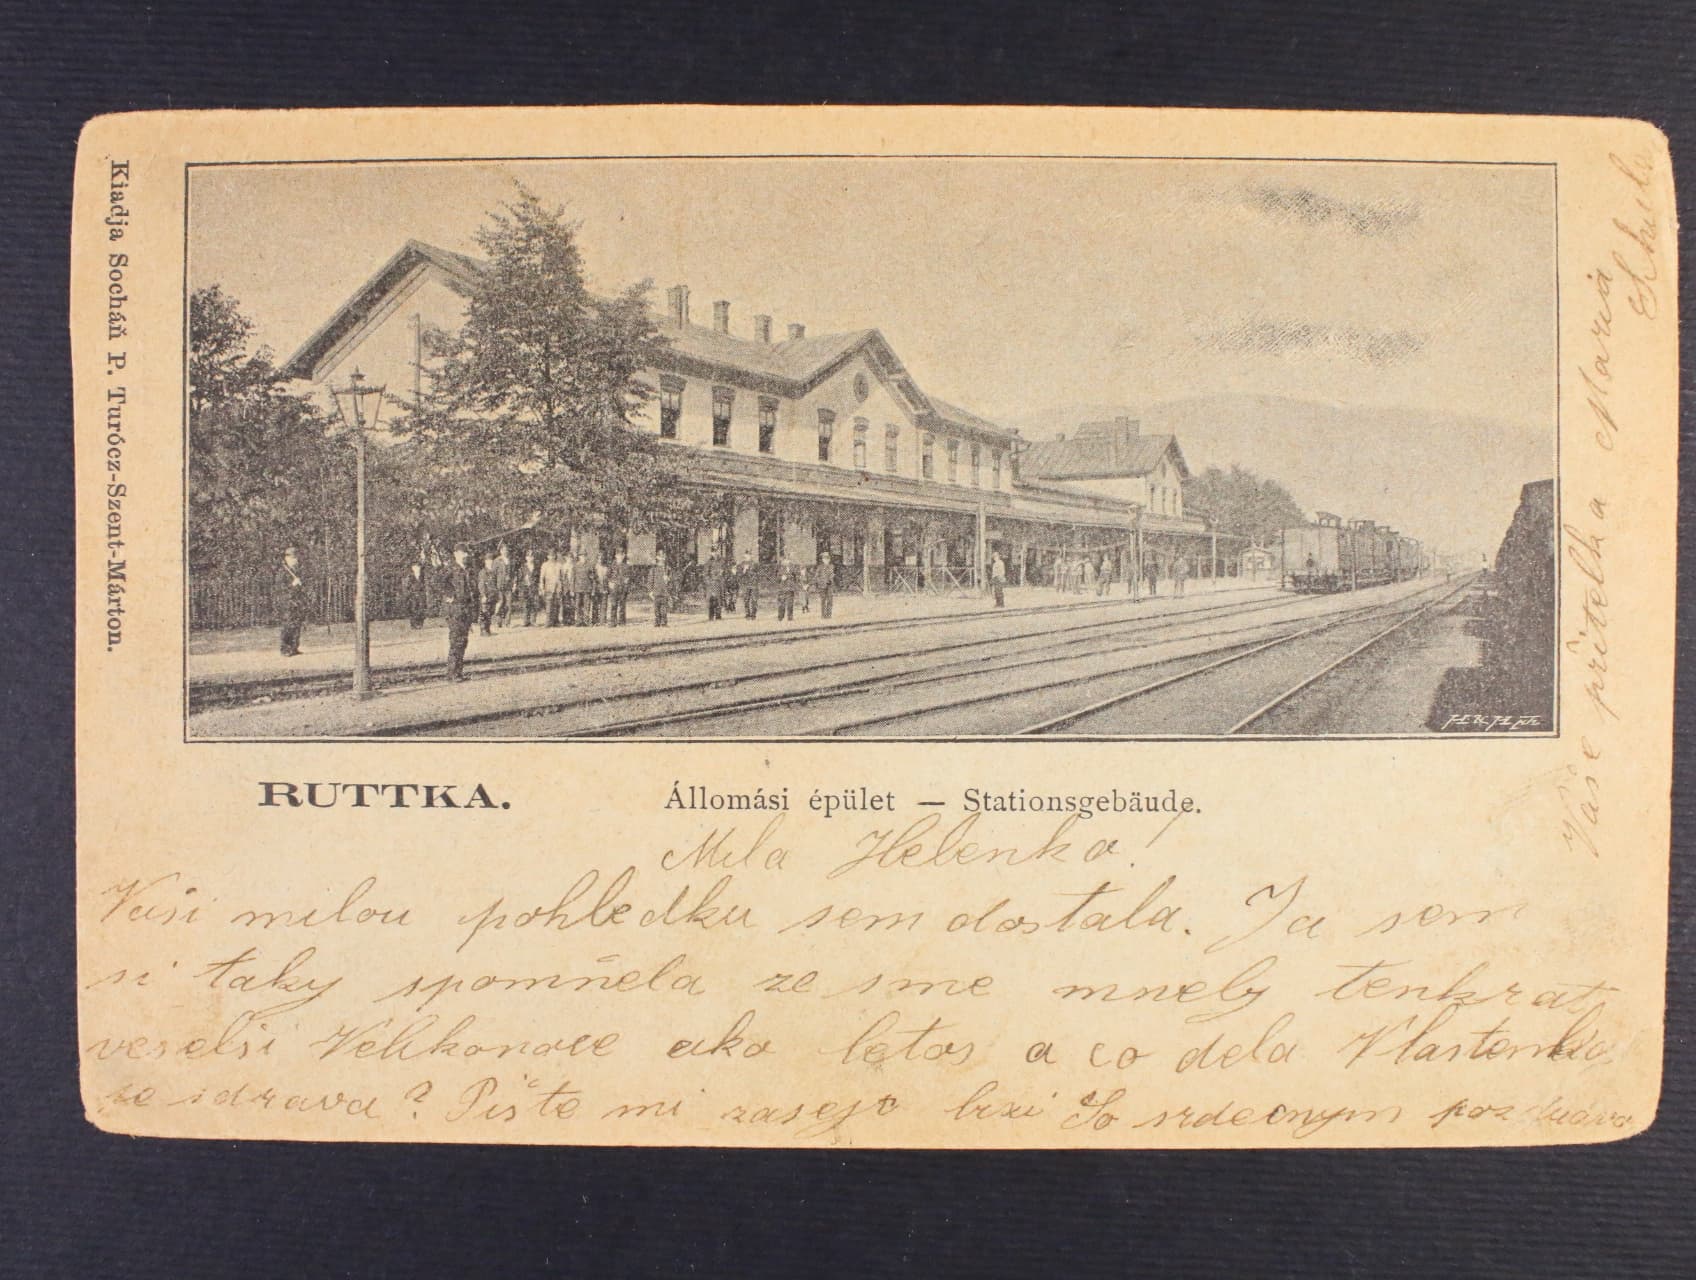 Kiadja Socháň P. Turócz-Szent-Márton.
RUTTKA. Állomási épület — Stationsgebäude.
Mila Helenko!
Vaši milou pohledku sem dostala. Ja sem
si taky spomňela ze sme mnely tenkrat
veselši Velikonoce ako letos a co dela Vlastenka
je zdrava? Pište mi zasejc brzi So srdecnym pozdravo
Vaše přitelka Maria